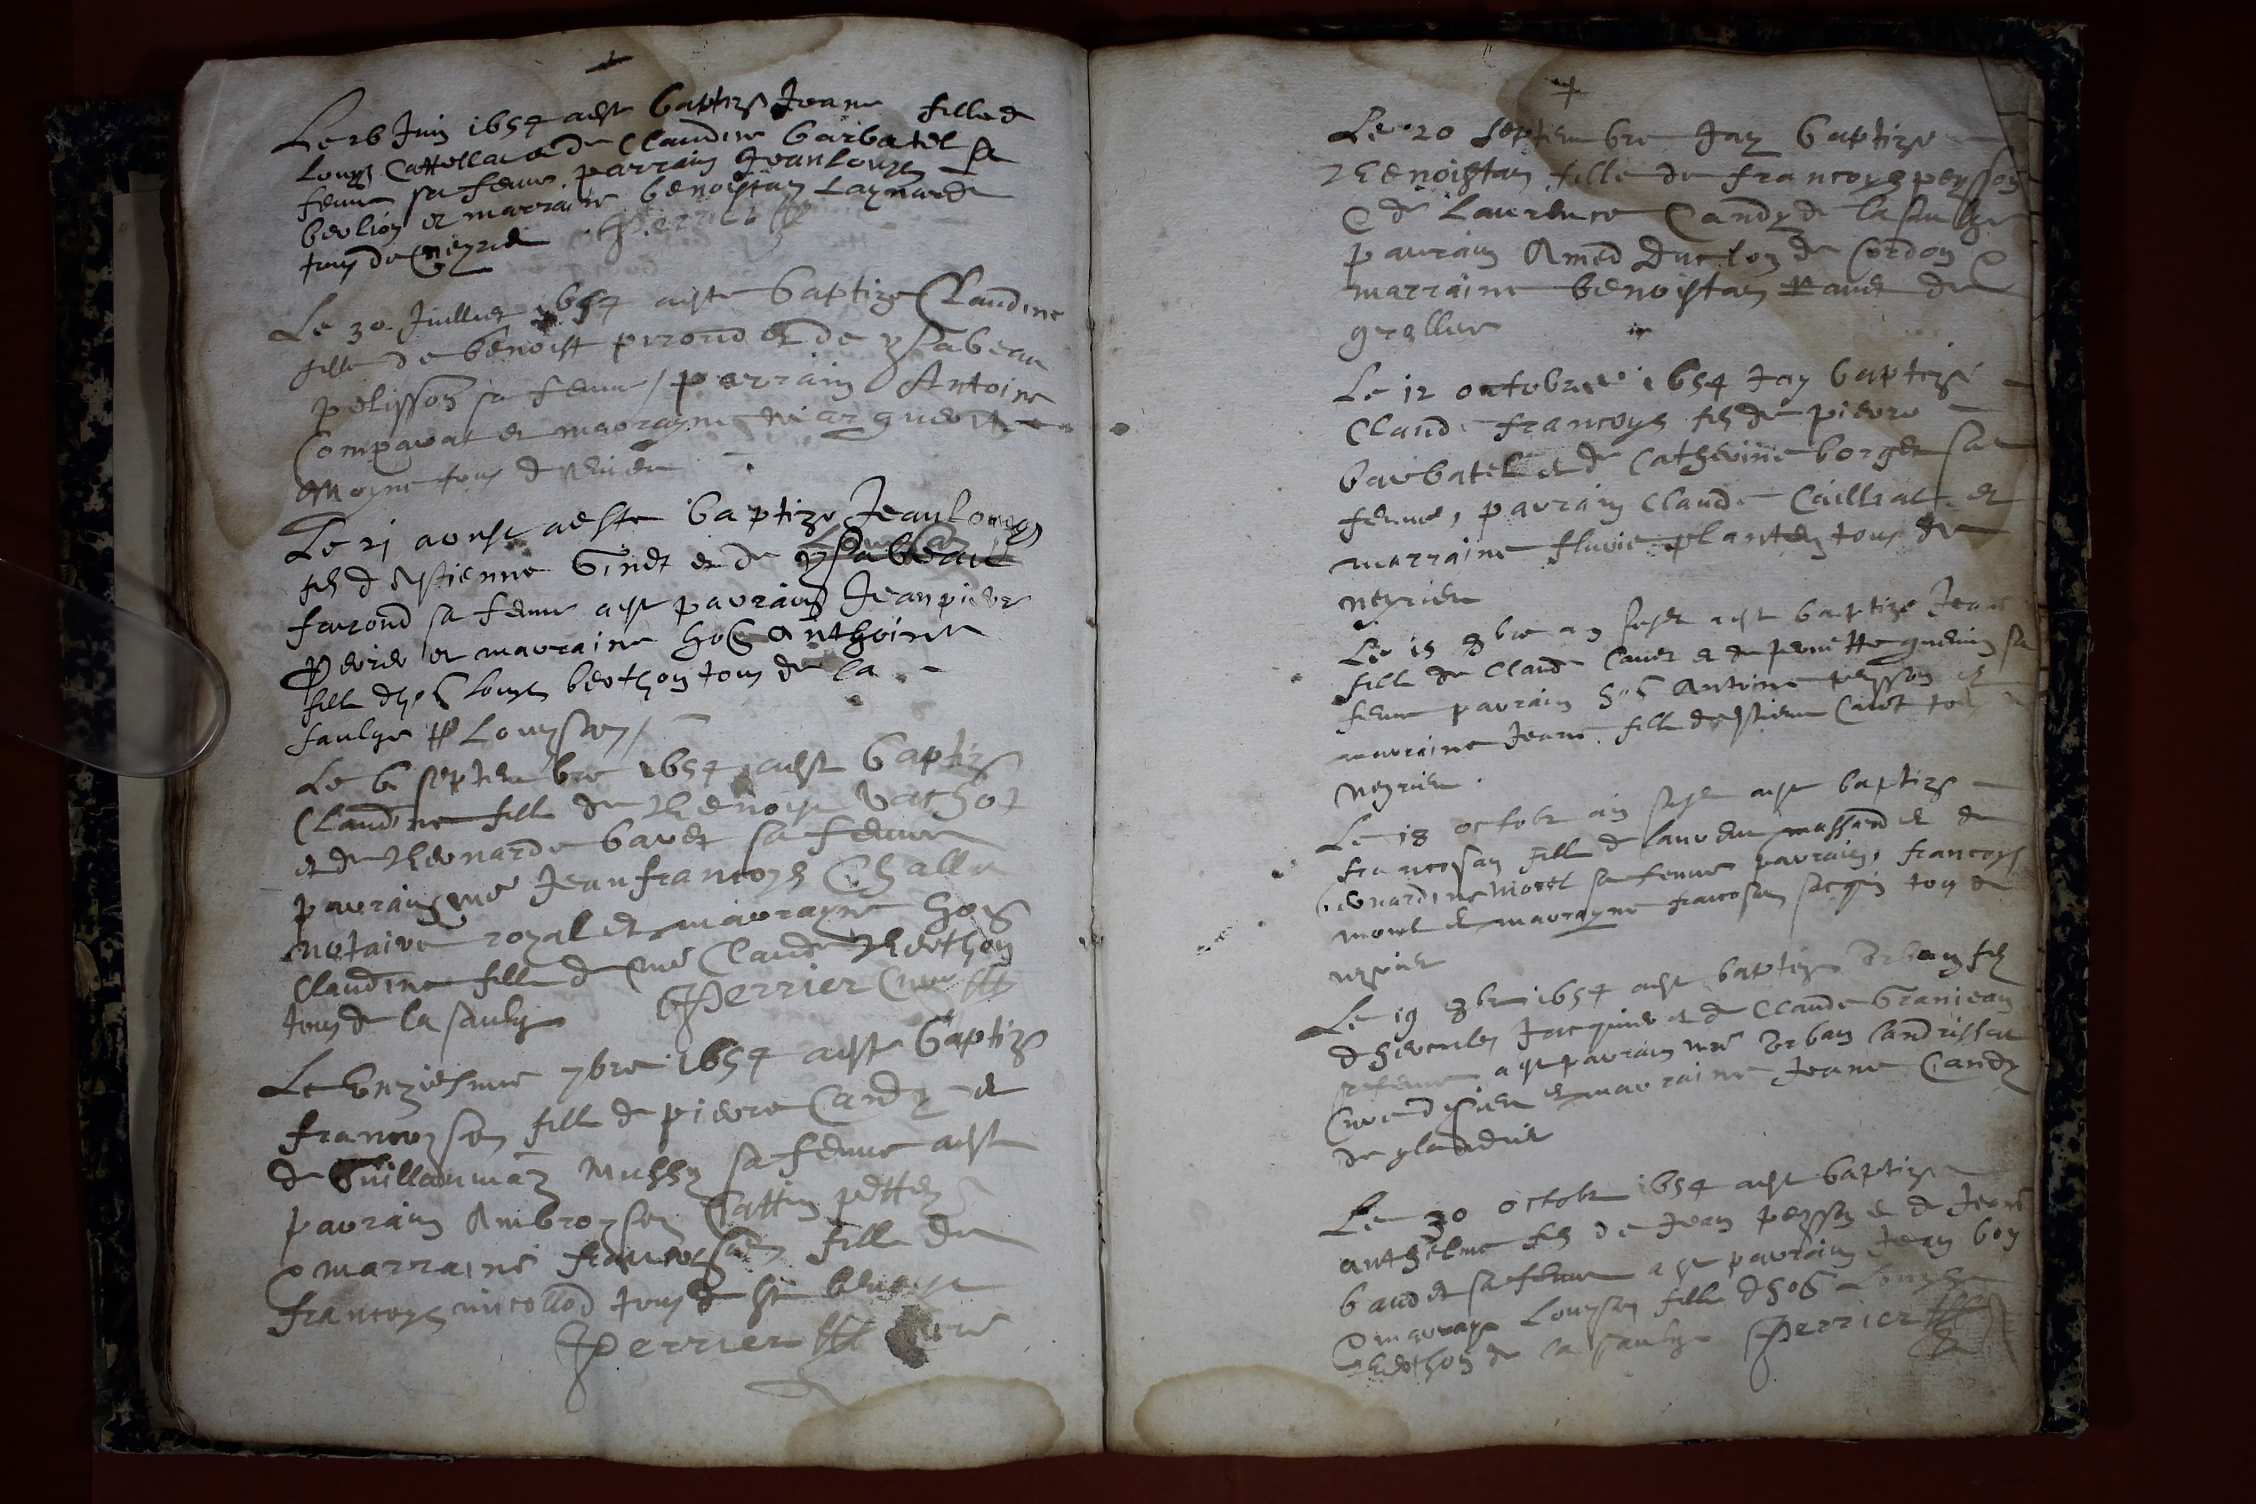 Le 26 Juin 1654 a este baptize Jeane fille de
Louys Cattellaz et de Claudine barbatel sa
feme sa feme, parrain Jean Louys
berlioz et marraine benoistan
tous de Neyrieu Perrier
Le 30 Juillet 1654 a este baptize Claudine
fille de benoist pirond et de ysabeau
pelisson sa feme / parrain Antoine
Comparat et marrayne Marguerite
Moyne tous de
Le 21 aoust a este baptize Jean Louys
filz d estienne Ginet et de ysabeau
farond sa feme a este parrain Jean pierre
Perier et marraine hon Anthoine
fille d hon Louys berthon tous de la
saulge Louyson /
Le 6 septembre 1654 a este baptize
Claudine fille de Benoist Vachot
et de Bernarde bavet sa feme
parrain me Jean francoys Challe
notaire royal et marrayne hon
Claudine fille de me Claude Berthon
tous de la saulge Perrier cure
Le Unziesme 7bre 1654 a este baptize
francoyson fille de pierre Candy et
de Guillaumaz Mussy sa feme a este
parrain Ambroyson Cattin pettey
& marraine francoyson fille de
francoys nicollod tous de st benoist
Perrier cure
Le 20 septembre Jay baptize
Benoistan fille de francoys peysson
& de Laurence Candy de la saulge
parrain Amed Duclon de Cordon &
marraine benoistan ravet de
groller
Le 12 octobre 1654 Jay baptize
Claude francoys filz de pierre
barbatel et de Catherine borget sa
feme, parrain Claude Caillat et
marraine fluvie plantey tous de
neyrieu
Le 15 8bre an susd a este baptize Jeane
fille de Claude Cavet et de pernette guerin sa
feme parrain hon Antoine peysson et
marraine Jeane fille d estiene Cavet tous de
Neyrieu.
Le 18 octobre an susd a este baptize
francoysan fille de laurent massard et de
bernardine morel sa feme parrain, francoys
morel et marrayne francoysan jacquin tous de
neyrieu
Le 19 8bre 1654 a este baptize Urban filz
d hercules Jacquier et de Claude Granjean
sa feme a este parrain mre Urban landrissat
Cure d et marraine Jeane Candy
de glandieu
Le 30 octobre 1654 a este baptize
anthelme filz de Jean peysson et de Jeane
baudet sa feme a este parrain Jean boy
& marraine Louyson fille d hon Louys
Berthon de la saulge Perrier